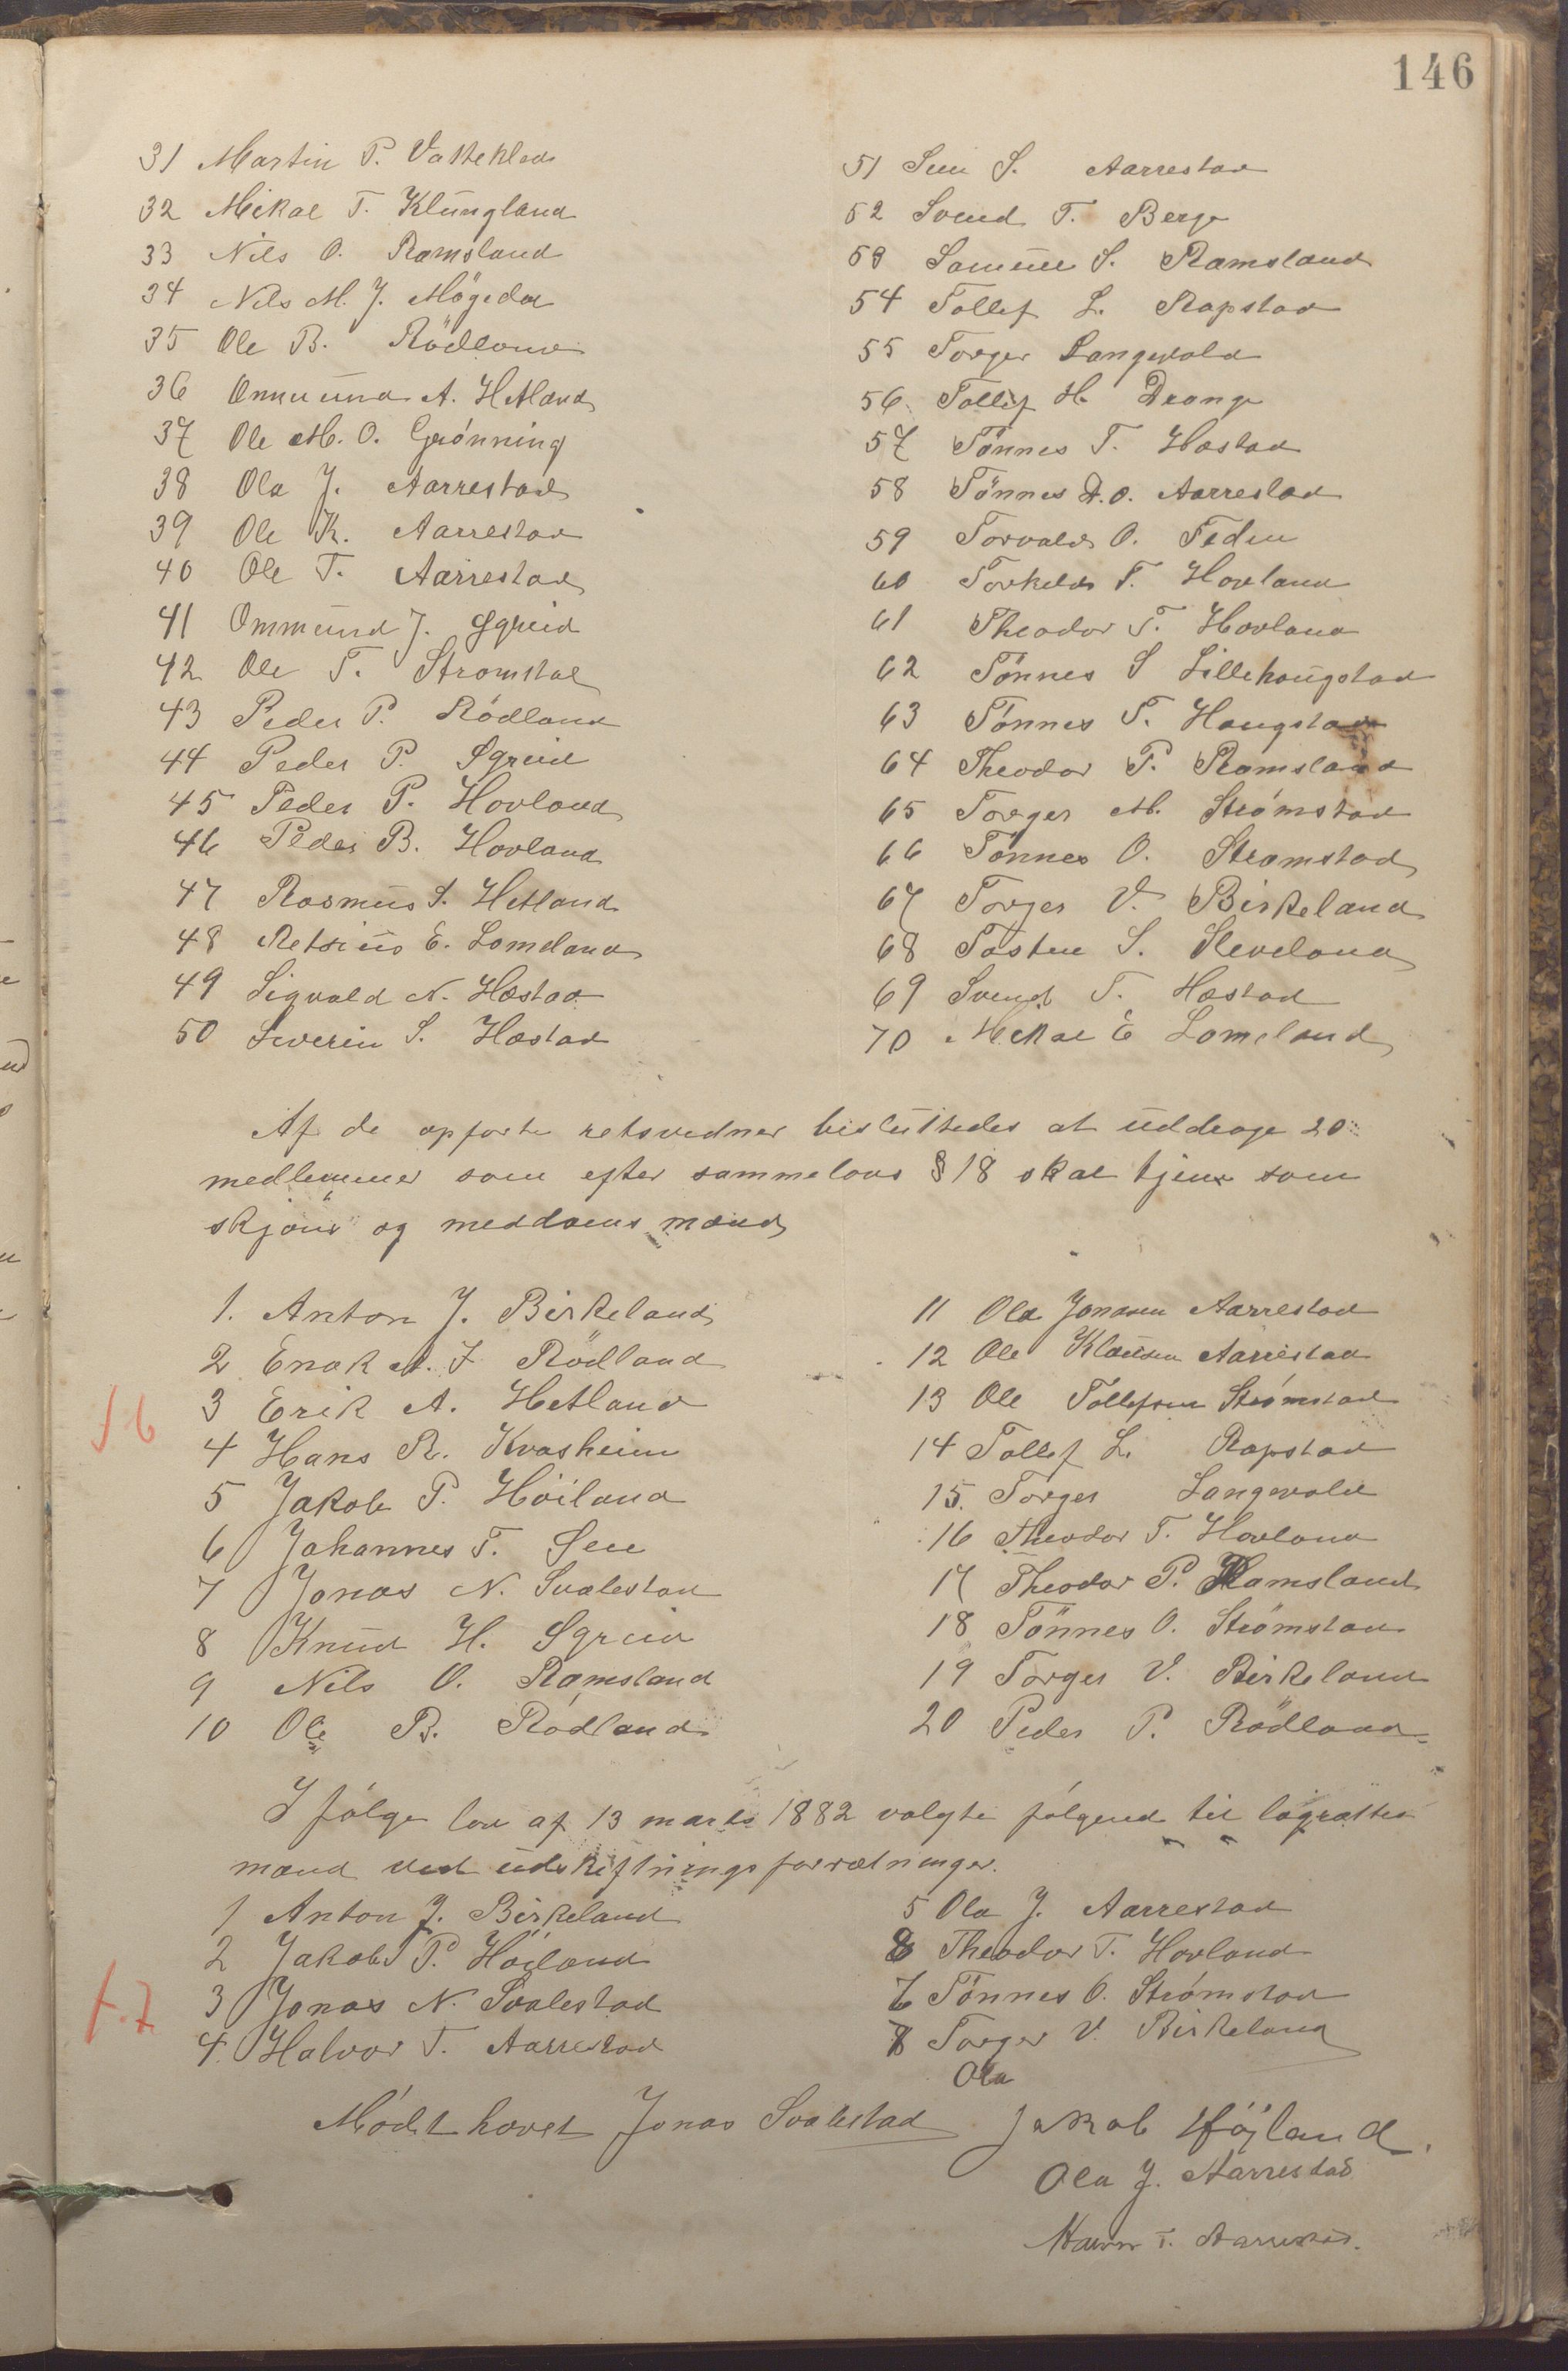 146
31 Martin P. Vatteklev
32 Mikal T. Klungland
33 Nils O. Ramsland
34 Nils M. J. Mögedal
35 Ole B. Rödland
36 Ommund A. Hetland
37 Ole M. O. Grónning
38 Ola J. Aarrestad
39 Ole K. Aarrestad
40 Ole T. Aarrestad
41 Ommund J. Sgreid
42 Ole T. Stromstad
43 Peder P. Rödland
44 Peder P. Sgreid
45 Peder P. Hovland
46 Peder B. Hovland
47 Rasmus S. Hetland
48 Retsius E. Lomeland
49 Sigvald N. Hæstad
50 Severin S. Hæstad
51 Sven S. Aarrestad
52 Svend T. Berge
53 Samuel S. Ramsland
54 Tollef L. Rapstad
55 Torger Langevald
56 Tollef H. Drange
57 Tönnes T. Hæstad
58 Tönnes A. O. Aarrestad
59 Torvald O. Feden
60 Torkeld T. Hovland
61 Theodor T. Hovland
62 Tönnes S Lillehaugstad
63 Tönnes T. Haugstad
64 Theodor P. Ramsland
65 Torger M. Strómstad
66 Tönnes O. Stromstad
67 Torger V. Birkeland
68 Tosten S. Sleveland
69 Svend T. Hæstad
70 Mikal E Lomeland
Af de opførte retsvidner besluttedes at uddrage 20
medlemmer som efter sammelovs § 18 skal tjene som
skjøns og meddoms mænd
1. Anton J. Birkeland
2 Enok A. J Rödland
3 Erik A. Hetland
4 Hans R. Kvasheim
5 Jakob P. Höiland
6 Johannes T. See
7 Jonas N. Svalestad
8 Knud H. Sgreid
9 Nils O. Ramsland
10 Ole B. Rödland
11 Ola Jonasen Aarrestad
12 Ole Klausen Aarrestad
13 Ole Tollefsen Strómstad
14 Tollef L. Rapstad
15. Torger Langevald
16 Theodor T. Hovland
17 Theodor P. Ramsland
18 Tönnes O. Strömstad
19 Torger V. Birkeland
20 Peder P. Rödland
I fólge lov af 13 marts 1882 valgte fólgend til lagrættes
mænd ved udskiftningsforretninger.
1 Anton J. Birkeland
2 Jakob P. Höiland
3 Jonas N. Svalestad
4. Halvor T. Aarrestad
5 Ola J. Aarrestad
6 Theodor T. Hovland
7 Tönnes O. Strómstad
8 Torger V. Birkeland
Ola
Mödet hævet Jonas Svalestad Jakob Höjland.
Ola J. Aarrestad
Halvor T. Aarrestad.